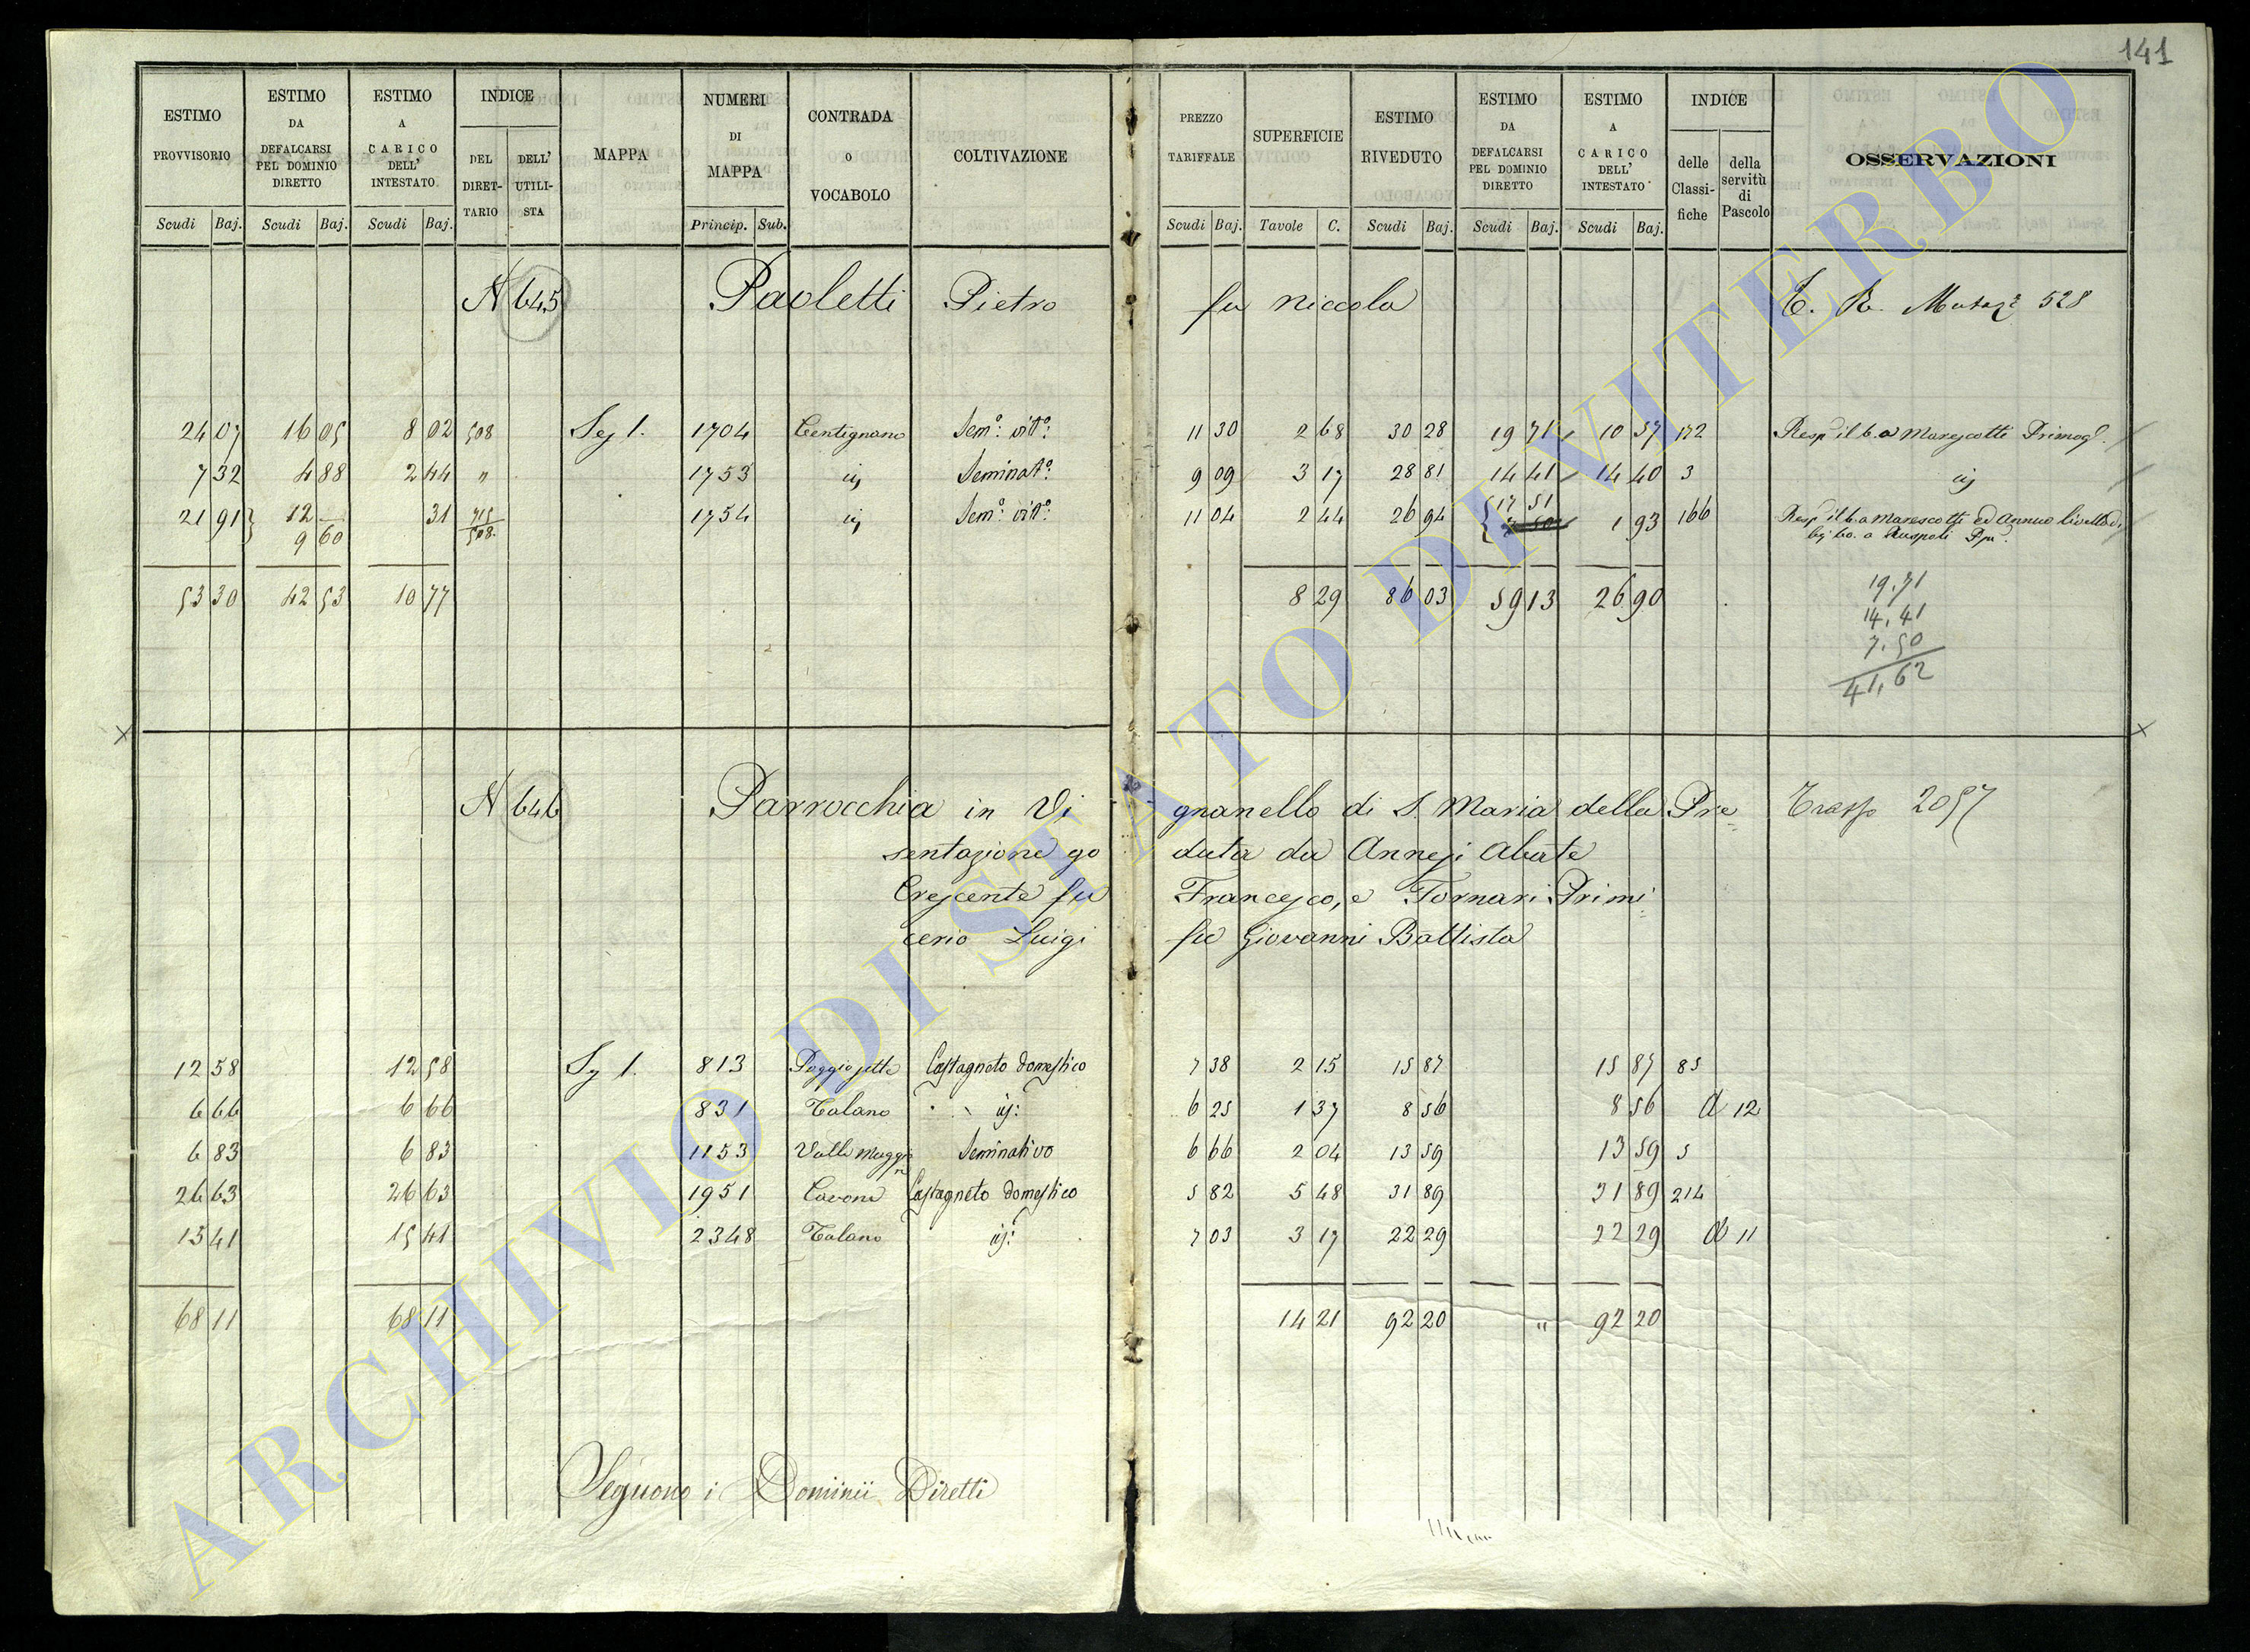 141
ESTIMO PROVVISORIO
ESTIMO DA DEFALCARSI PEL DOMINIO DIRETTO
ESTIMO A CARICO DELL' INTESTATO
INDICE
DEL DIRET-TARIO
DELL' UTILI-STA
MAPPA
NUMERI DI MAPPA
CONTRADA O VOCABOLO
COLTIVAZIONE
PREZZO TARIFFALE
SUPERFICIE
ESTIMO RIVEDUTO
ESTIMO DA DEFALCARSI PEL DOMINIO DIRETTO
ESTIMO A CARICO DELL' INTESTATO
INDICE
delle Classi-fiche
della servitù di Pascolo
OSSERVAZIONI
Scudi Baj. Scudi Baj. Scudi Baj. Princip. Sub. Scudi Baj. Tavole C. Scudi Baj. Scudi Baj. Scudi Baj.
N 645 Paoletti Pietro fu Niccola E. R. Mutaz. 528
24 07 16 05 8 02 508 Sez 1. 1704 Centignano Sem.° vit.°: 11 30 2 68 30 28 19 71 10 57 172 Resp il b. a Marescotti Primog.
7 32 4 88 2 44 " 1753 ij Seminat.° 9 09 3 17 28 81 14 41 14 40 3 ij
21 91 12 — 31 715 1754 ij Sem.° vit.°: 11 04 2 44 26 94 17 51 1 93 166 Resp il b. a Marescotti ed annuo livello di
9 60 508. 7 50 bj 60. a Ruspoli Ppe.
53 30 42 53 10 77 8 29 86 03 59 13 26 90
19.71
14.41
7.50
41,62
N 646 Parrocchia in Vi gnanello di S. Maria della Pre= Trasp 2057
sentazione go duta da Annesi Abate
Crescente fu Francesco, e Fornari Primi=
cerio Luigi fu Giovanni Battista
12 58 12 58 Sez 1. 813 Castagneto domestico 7 38 2 15 15 87 15 87 85
6 66 6 66 831 Talano ij: 6 25 1 37 8 56 8 56 A 12
6 83 6 83 1153 Valle Maggio Seminativo 6 66 2 04 13 59 13 59 5
26 63 26 63 1951 Cavone Castagneto domestico 5 82 5 48 31 89 31 89 214
15 41 15 41 2348 Talano ij: 7 03 3 17 22 29 22 29 A 11
68 11 68 11 14 21 92 20 " 92 20
Seguono i Dominii Diretti
ARCHIVIO DI STATO DI VITERBO